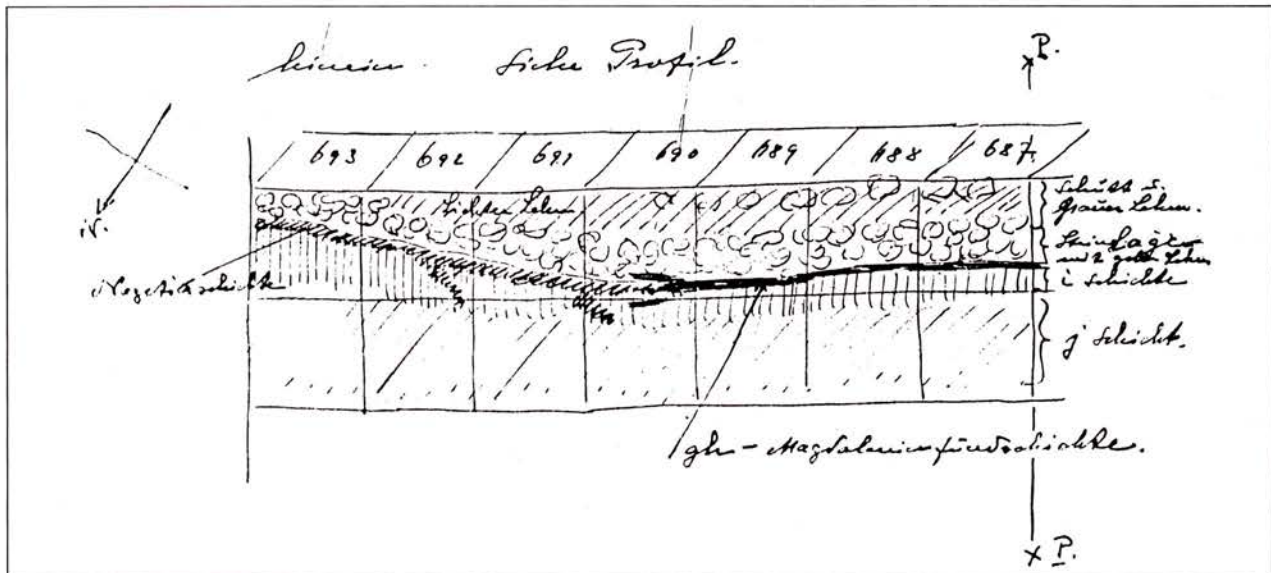 hinein. Siehe Profil.
P.
693 692 691 690 689 688 687
Lichter Lehm
Schutt u.
grauer Lehm.
Steinlage
mit gelb. Lehm
i Schichte
N.
j Schicht.
gh - Magdalenienfundschichte.
P.